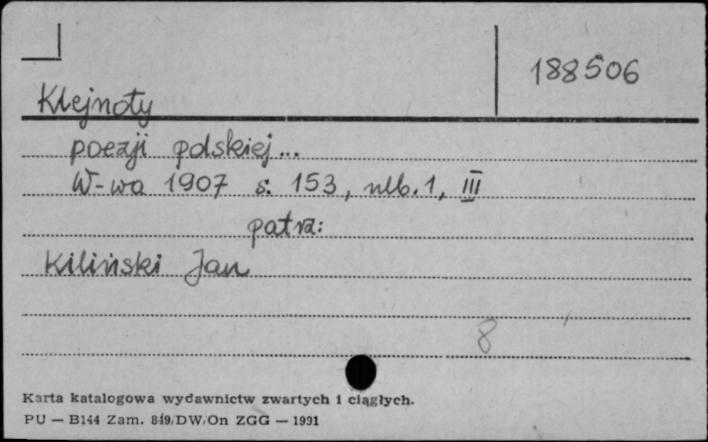 188506
Klejnoty
poezji polskiej...
W-wa 1907 s. 153, nlb. 1, III
patrz:
Kiliński Jan
8
Karta katalogowa wydawnictw zwartych i ciągłych.
PU — B144 Zam. 849/DW/On ZGG — 1991